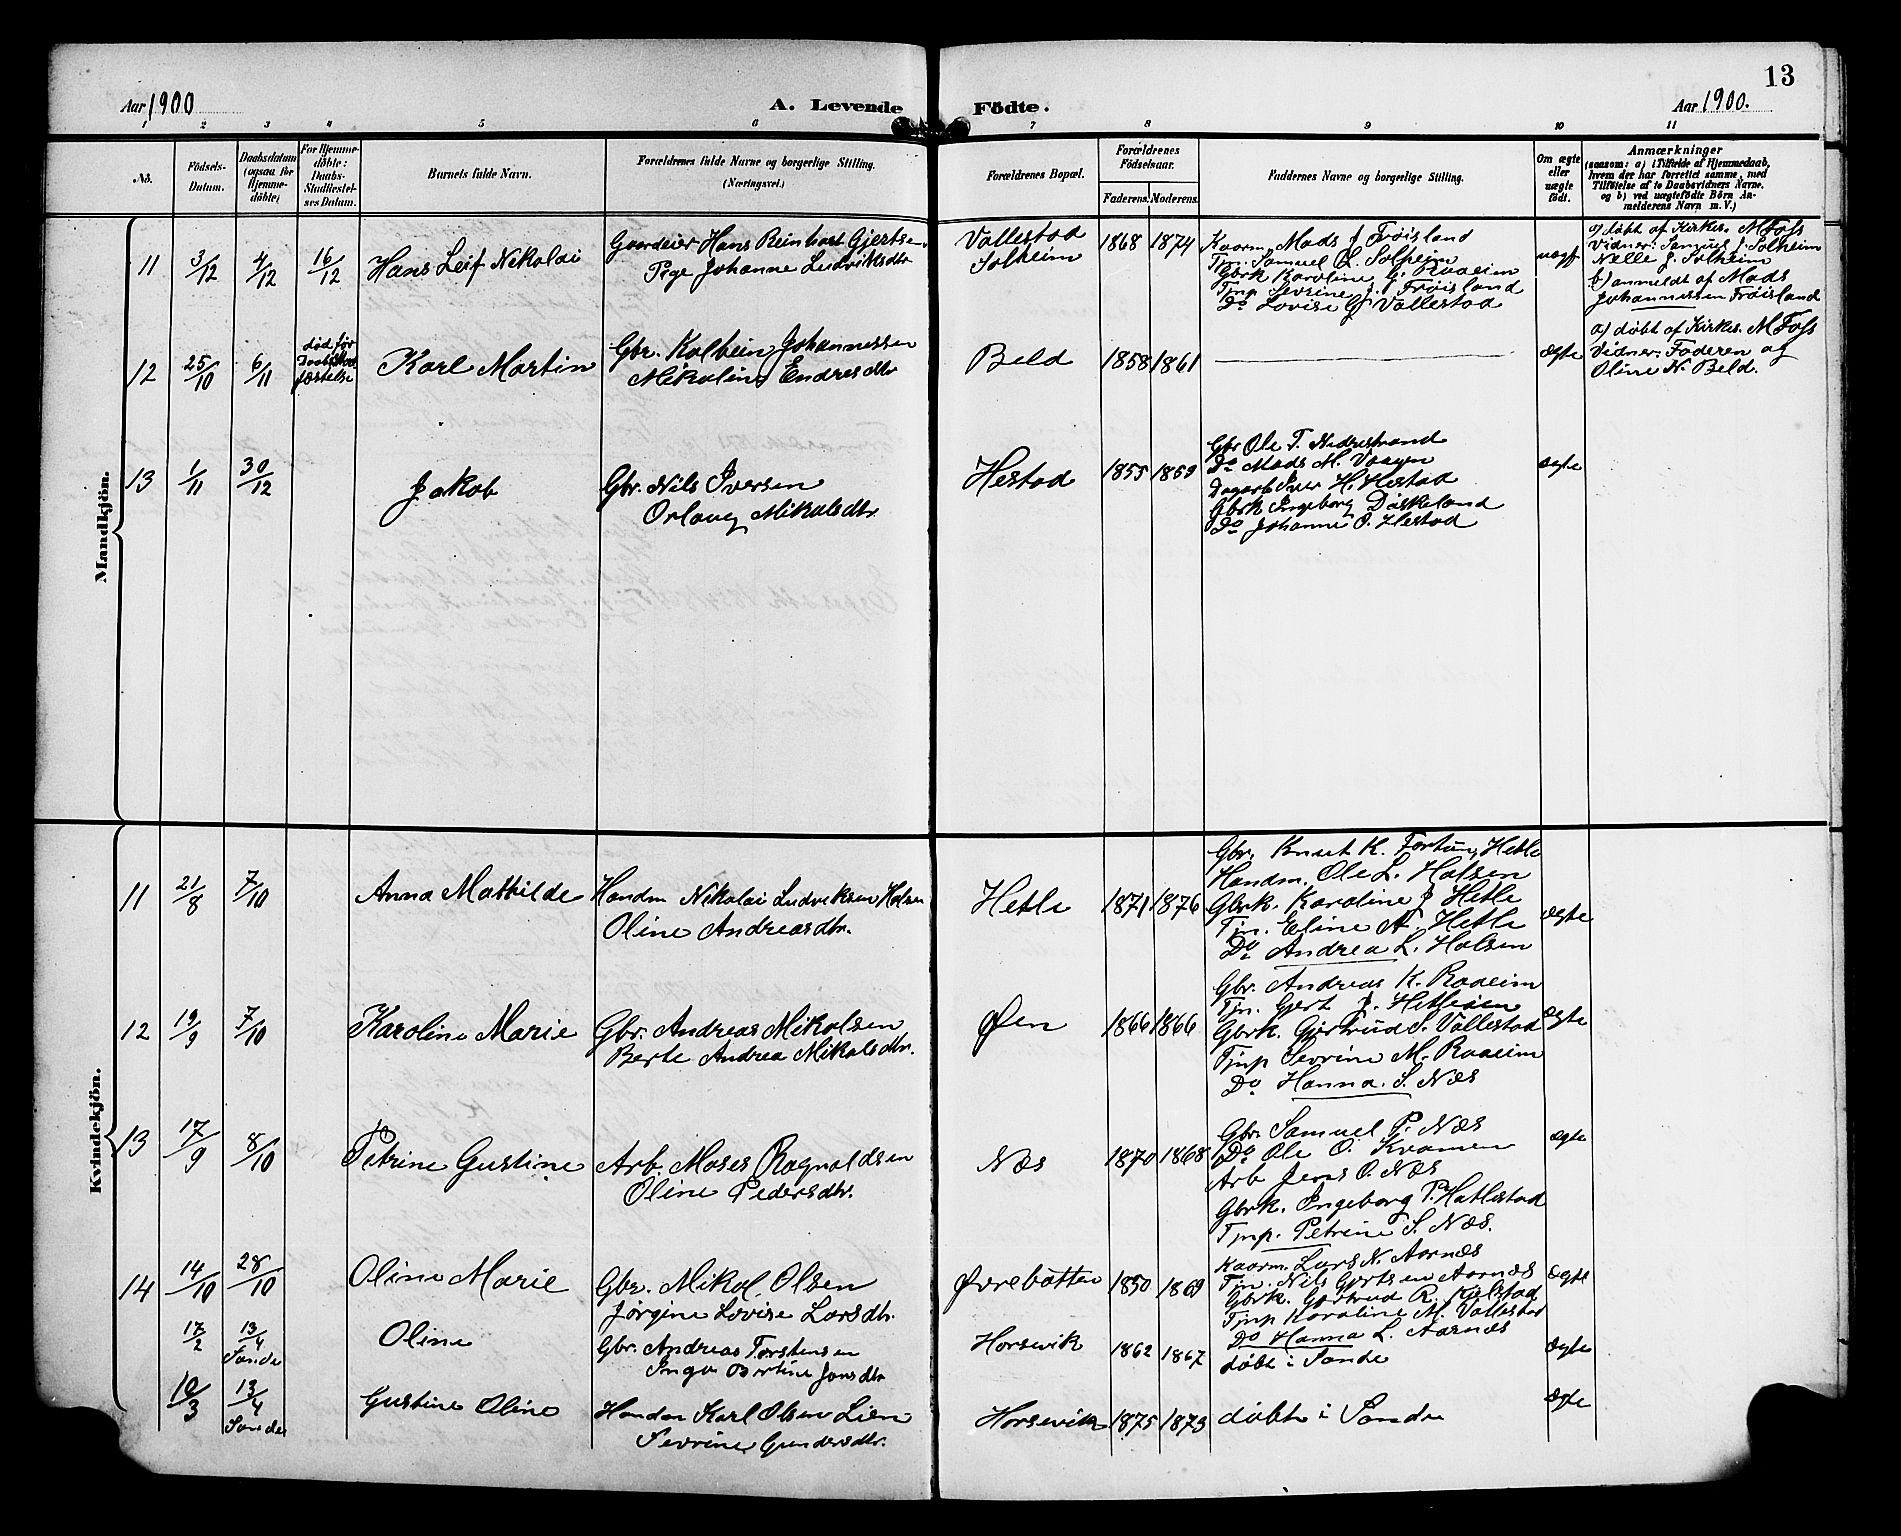 13
Aar 1900
A. Levende Födte.
Aar 1900.
1 2 3 4 5 6 7 8 9 10 11
No.
Födsels-Datum.
Daabsdatum (ogsaa for Hjemme-döbte)
For Hjemme-döbte: Daabs-Stadfæstel-ses Datum.
Barnets fulde Navn.
Forældrenes fulde Navne og borgerlige Stilling.
(Næringsvei.)
Forældrenes Bopæl.
Forældrenes Födselsaar.
Faderens. Moderens.
Faddernes Navne og borgerlige Stilling.
Om ægte eller uægte födt.
Anmærkninger
(saasom: a) i Tilfælde af Hjemmedaab,
hvem der har forrettet samme, med
Tilföielse af to Daabsvidners Navne,
og b) ved uægtefödte Börn An-
melderens Navn m. V.)
Mandkjön.
11 3/12 4/12 16/12 Hans Leif Nikolai
Gaardeier Hans Reinhart Gjertsen
Pige Johanne Ludviksdtr
Vallestad
Solheim
1868 1874
Kaarm. Mads J Frøisland
Tjn. Samuel A. Solheim
Gbrk Karoline C. Raaeim
Tjnp Sevrine J. Frøisland
Do Lovise G. Vallestad
uægt
a) døbt af Kirkes. M Foss
Vidner: Samuel J. Solheim
Nelle J. Solheim
b) anmeldt af Mads
Johannessen Frøisland
12 25/10 6/11 død før Daabstad fæstelse Karl Martin
Gbr. Kolbein Johannessen
Mikoline Endresdtr
Beld
1858 1861
ægte
a) døbt af Kirkes. M Foss
Vidner: Faderen og
Oline N. Beld.
13 1/11 30/12 Jakob
Gbr. Nils Iversen
Orlaug Mikalsdtr.
Hestad
1855 1859
Gbr Ole T. Nedrestrand
Do Mads M. Vaagen
Dagarb Iver H. Hestad
Gbrk Ingeborg Døskeland
Do Johanne O. Hestad
ægte
Kvindekjön.
11 21/8 7/10 Anna Mathilde
Handm Nikolai Ludviksen Halsen
Oline Andreasdtr.
Hetle
1871 1876
Gbr. Knut K. Fortun, Hetle
Handm. Ole L. Halsen
Gbrk. Karoline J Hetle
Tjn. Eline A. Hetle
Do Andrea L. Halsen
ægte
12 19/9 7/10 Karoline Marie
Gbr. Andreas Mikalsen
Berte Andrea Mikalsdtr.
Øen
1866 1866
Gbr. Andreas K. Raaeim
Tjn. Gert J. Hetleøen
Gbrk. Gjertrud S. Vallestad
Tjnp Sevrine M. Raaeim
Do Hanna. S. Næs
ægte
13 17/9 8/10 Petrine Gustine
Arb. Moses Ragnaldsen
Oline Pedersdtr.
Næs
1870 1868
Gbr. Samuel P. Næs
Do Ole O. Kvamen
Arb Jens O. Næs
Gbrk. Ingeborg P. Hatlestad
Tjnp. Petrine S. Næs.
ægte
14 14/10 28/10 Oline Marie
Gbr. Mikal Olsen
Jørgine Lovise Larsdtr.
Øvrebotten
1850 1869
Kaarm. Lars N. Aarnæs
Tjn. Nils Gjertsen Aarnæs
Gbrk. Gjertrud R. Kjelstad
Tjnp Karoline M. Vallestad
Do Hanna L. Aarnæs
ægte
17/2 13/4 Sande Oline
Gbr. Andreas Torstensen
Inga Bertine Jonsdtr
Horsevik
1862 1867
døbt i Sande
ægte
10/3 13/4 Sande Gustine Oline
Handm Karl Olsen Lien
Sevrine Gundersdtr.
Horsevik
1875 1873
døbt i Sande
ægte